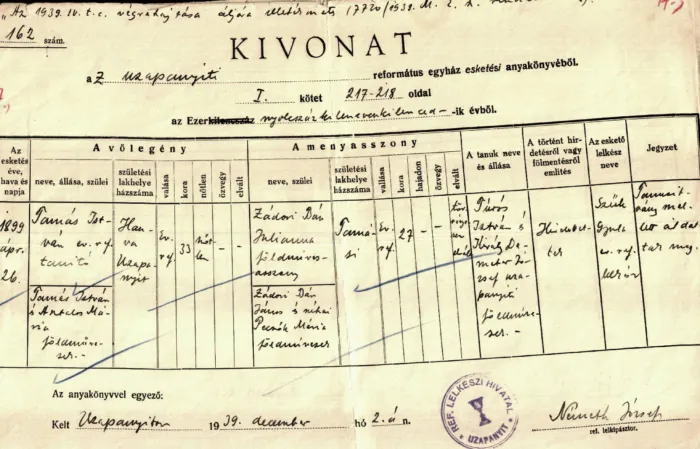 "Az 1939. IV. t. c. végrehajtása céljára illetékmentes (7720/1939. M. E. sz. rendelet
162 szám.
KIVONAT
az uzapanyiti református egyház esketési anyakönyvéből.
I. kötet 217-218 oldal
az Ezerkilencszáz nyolcszázkilencvenkilenced -ik évből.
Az esketés éve, hava és napja
A vőlegény
neve, állása, szülei
születési lakhelye házszáma
vallása
kora
nőtlen
özvegy
elvált
A menyasszony
neve, szülei
születési lakhelye házszáma
vallása
kora
hajadon
özvegy
elvált
A tanuk neve és állása
A történt hirdetésről vagy fölmentésről említés
Az eskető lelkész neve
Jegyzet
1899
ápr.
26.
Tamás Ist-
ván ev. ref.
tanító
Tamás István
s Antalos Má-
ria
földműve-
ser.-
Han-
va
Uzapa-
nyit
Ev.
rf.
33
nőt-
len
-
-
Zádori Dán
Julianna
földműves-
asszony
Zádori Dán
János s néhai
Mária
földműveser
Tamá-
si
Ev.
rf.
27
-
-
Túrós
István s
Király De-
meter Jó-
zsef uza-
panyiti
földműve-
ser.-
Hirdettet-
tek
Szűk
Gyula
ev. ref.
lelkész
Az anyakönyvvel egyező:
Kelt Uzapanyiton 1939. december hó 2.-á n.
REF. LELKÉSZI HIVATAL
UZAPANYIT
Németh József
ref. lelkipásztor.